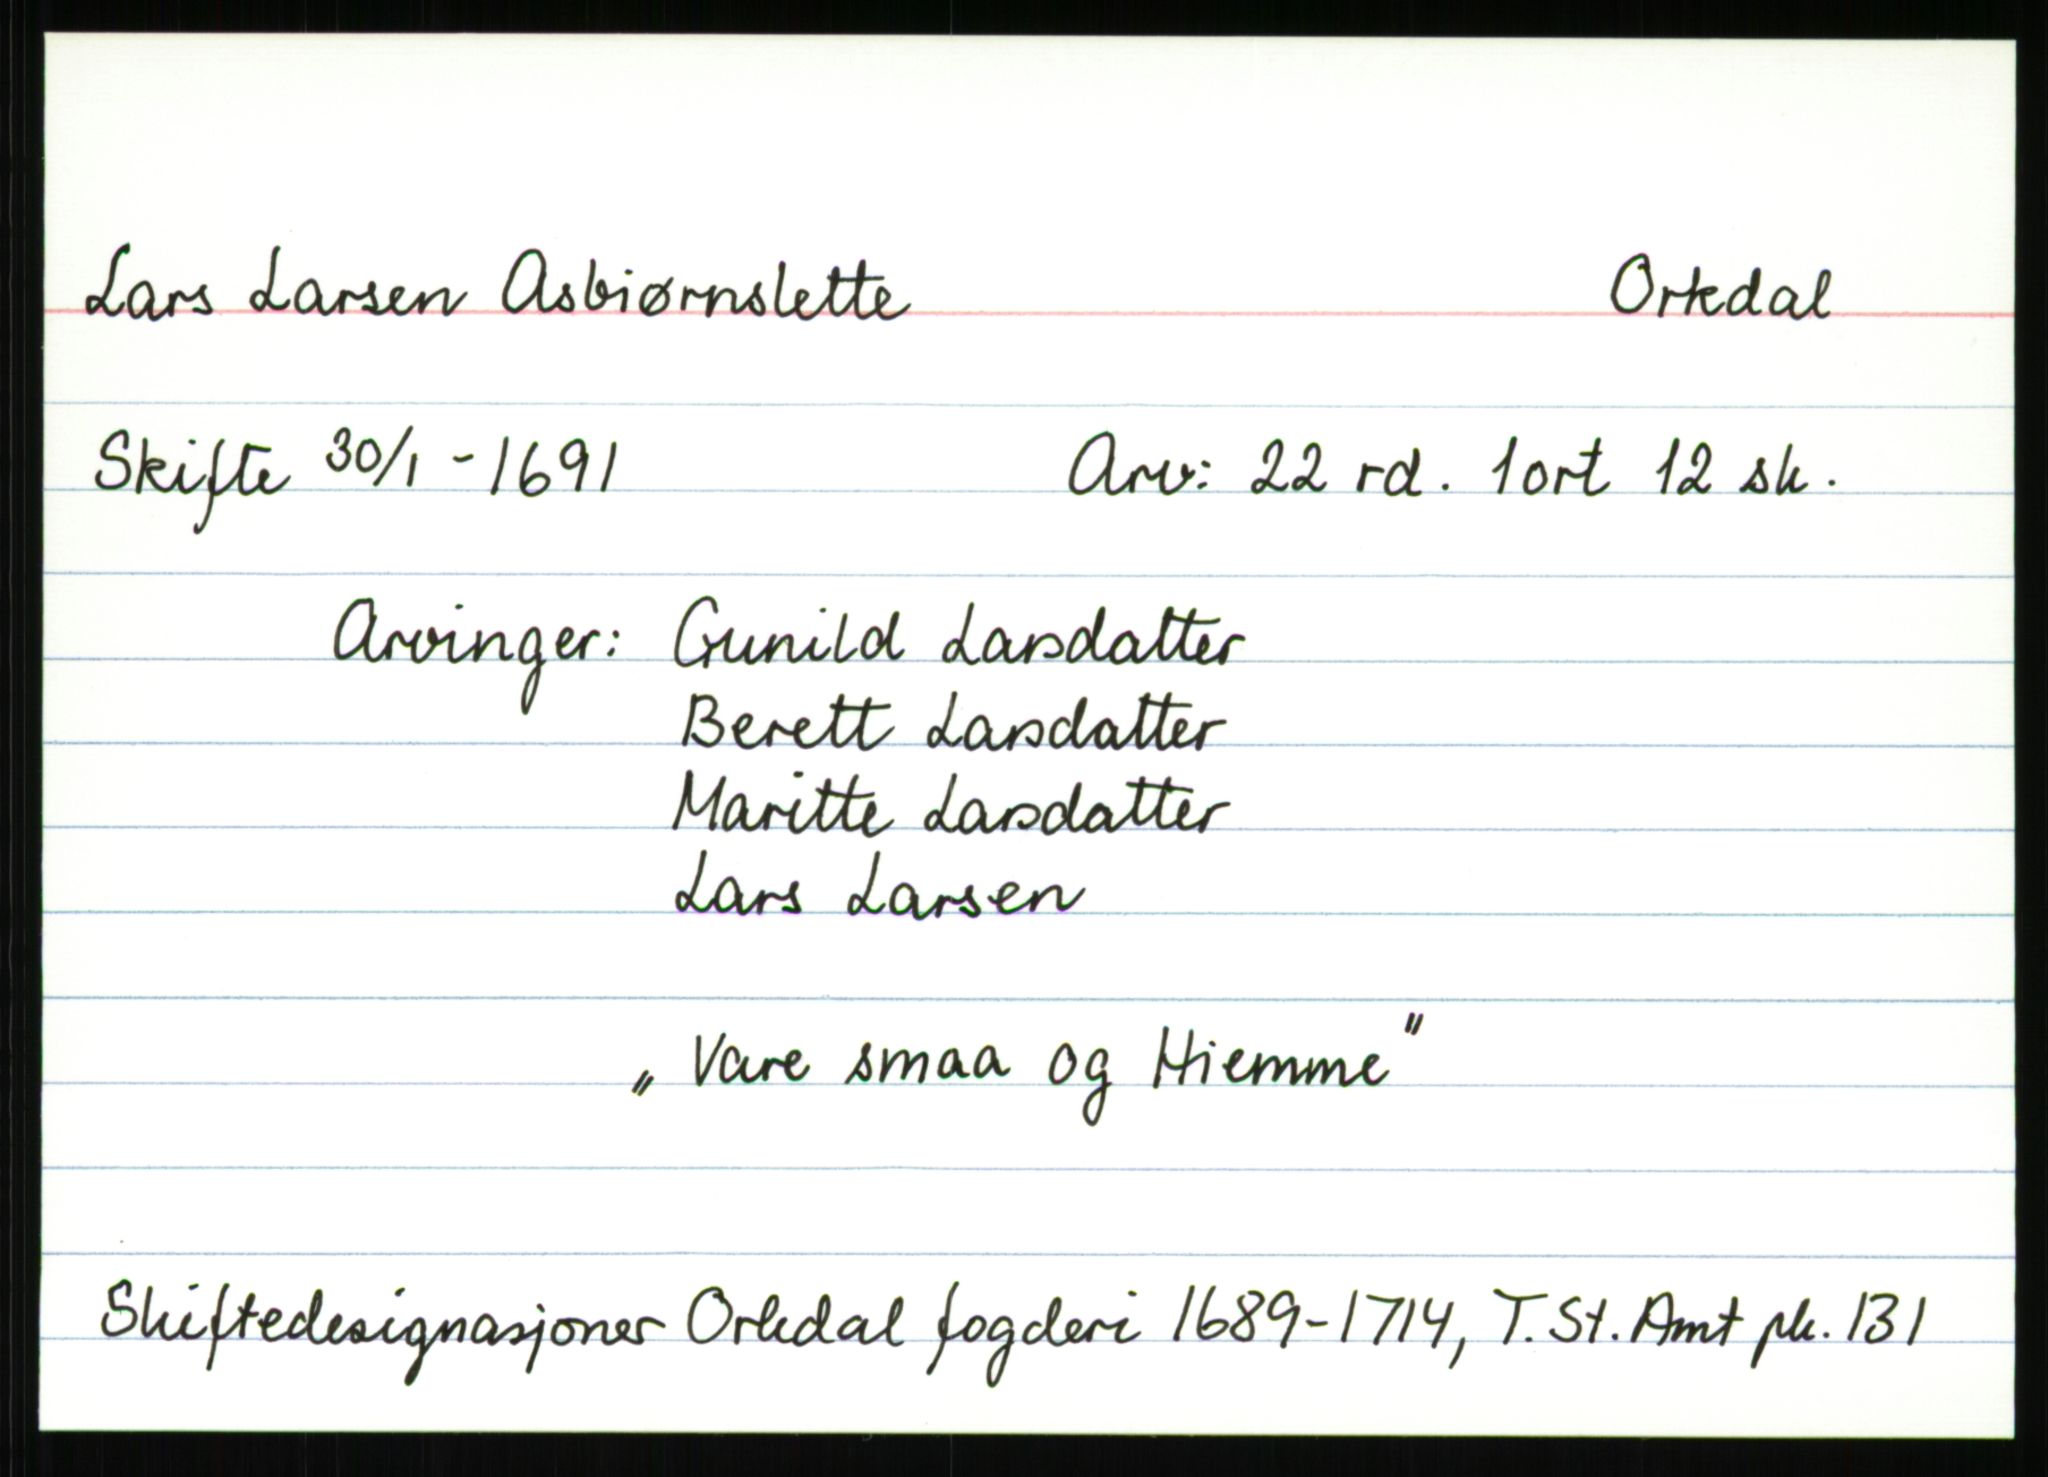 Lars Larsen Asbiørnslette Orkdal
Skifte 30/1 - 1691 Arv: 22 rd. 1 ort 12 sk.
Arvinger: Gunild Larsdatter
Berett Larsdatter
Maritte Larsdatter
Lars Larsen
„Vare smaa og Hiemme"
Skiftedesignasjoner Orkdal fogderi 1689-1714, T. St. Amt pk. 131